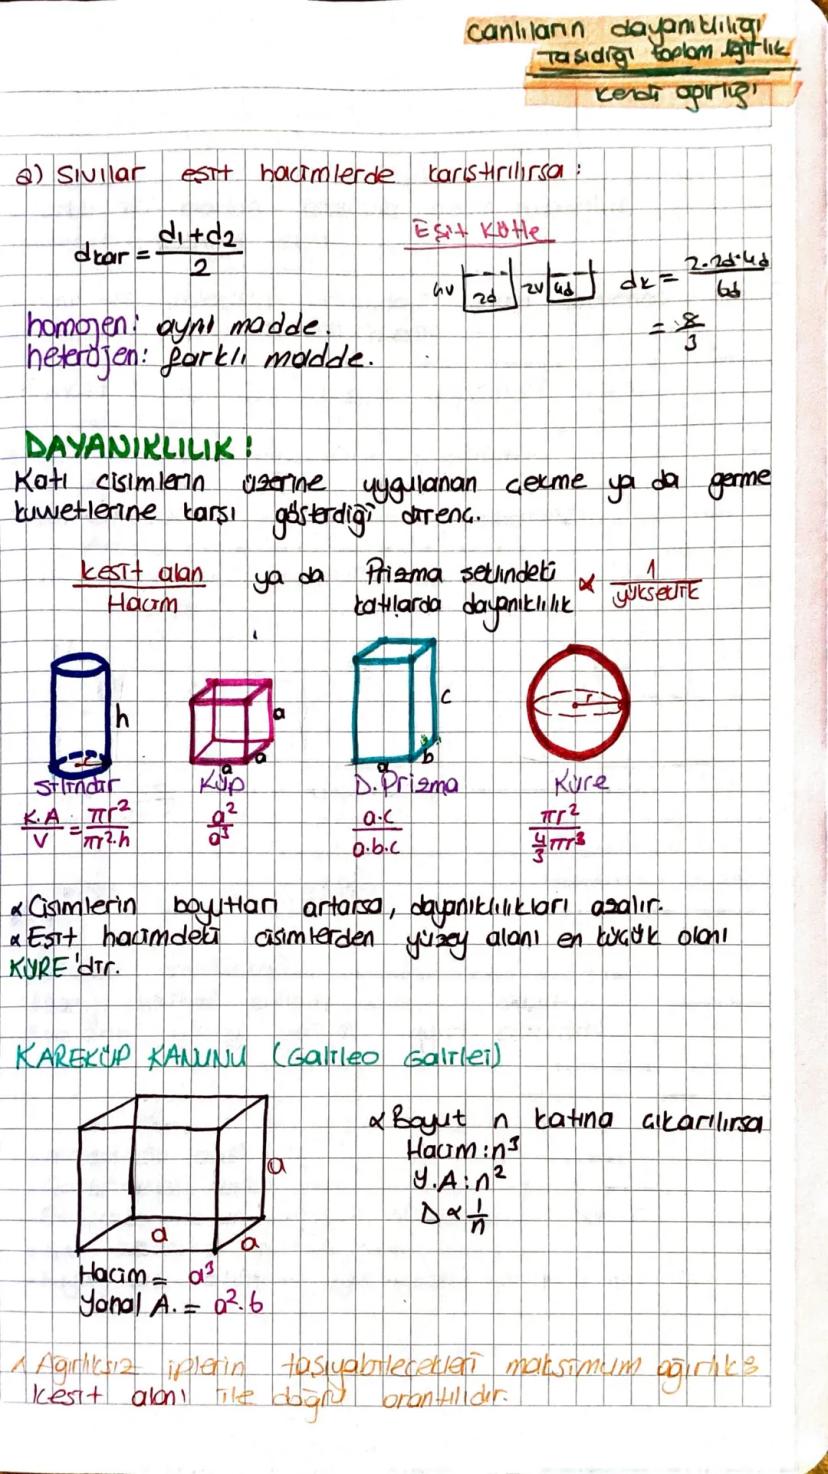 canlıların dayanıklılığı
Taşıdığı toplam ağırlık
kendi ağırlığı
a) Sıvılar eşit hacimlerde karıştırılırsa:
Eşit Kütle
dkar = d1+d2 / 2
4v 2d 2v 4d dk = 2.2d.4d / 6d
= 8/3
homojen: aynı madde.
heterojen: farklı madde.
DAYANIKLILIK!
Katı cisimlerin üzerine uygulanan çekme ya da germe
kuvvetlerine karşı gösterdiği direnç.
kesit alan / Hacim ya da Prizma şeklindeki katılarda dayanıklılık ∝ 1 / yükseklik
h a c
r a a a b r
Silindir Küp D.Prizma Küre
K.A / V = πr² / πr².h a² / a³ a.c / a.b.c πr² / 4/3 πr³
∝ Cisimlerin boyutları artarsa, dayanıklılıkları azalır.
∝ Eşit hacimdeki cisimlerden yüzey alanı en küçük olanı
KÜRE'dir.
KAREKÜP KANUNU (Galileo Galilei)
∝ Boyut n katına çıkarılırsa
Hacim : n³
Y.A : n²
D ∝ 1/n
a
a a
Hacim = a³
Yanal A. = a².6
Ağırlıksız iplerin taşıyabilecekleri maksimum ağırlık
kesit alanı ile doğru orantılıdır.